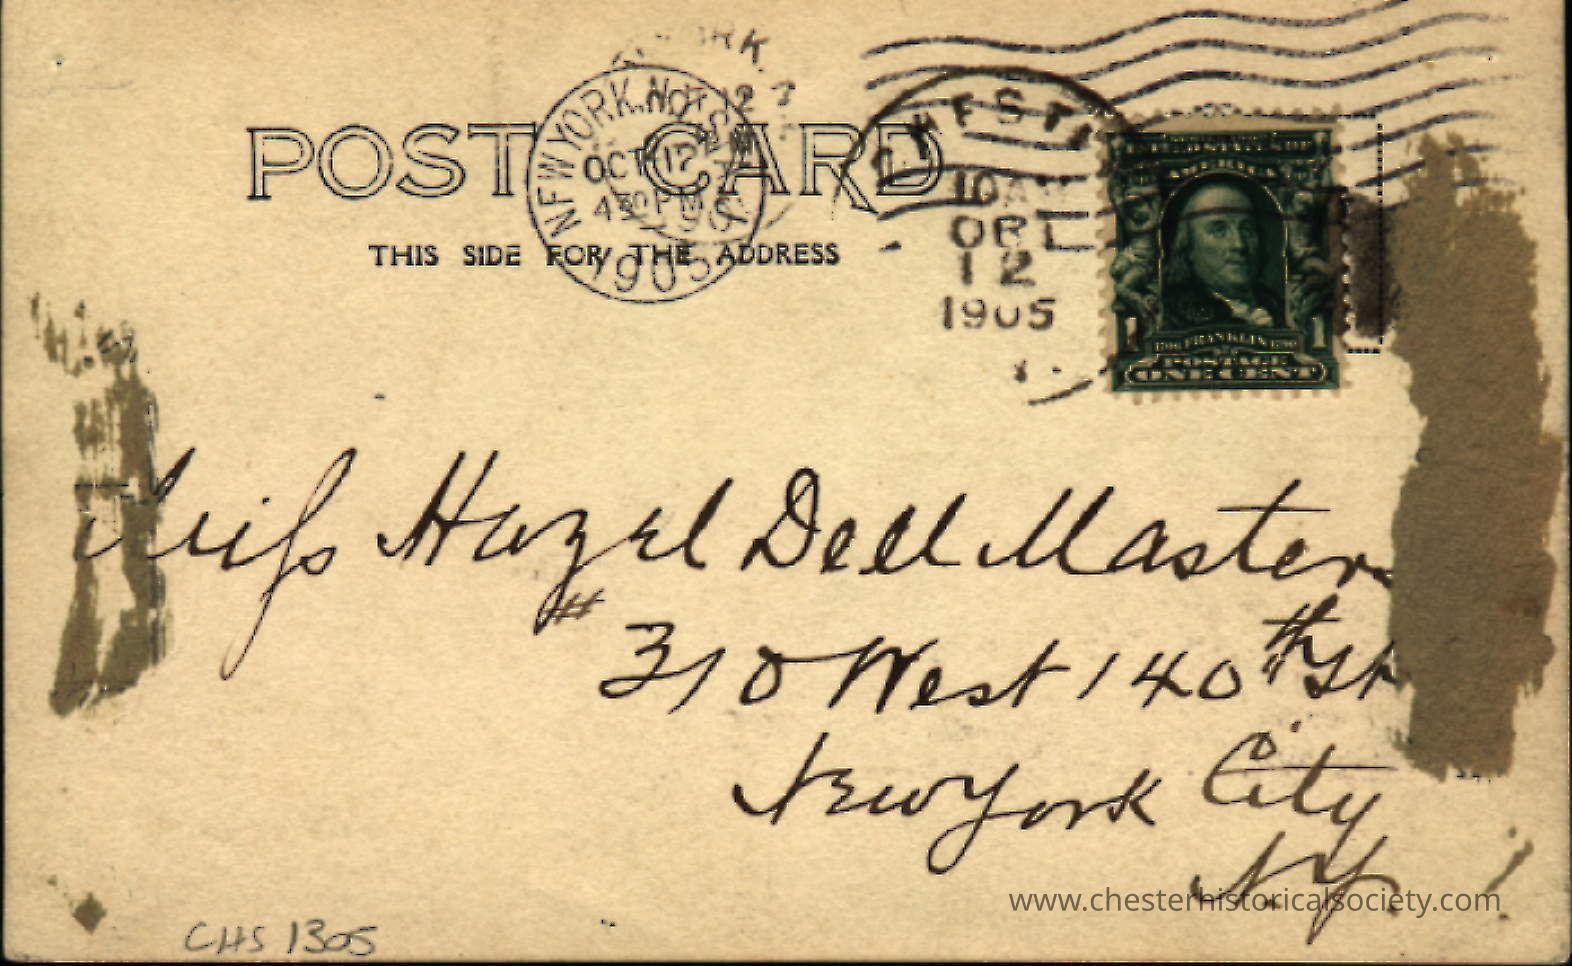 POST CARD
THIS SIDE FOR THE ADDRESS
NEW YORK, N.Y. STA.
OCT 12
4 30 PM
1905
CHESTER
10 AM
OCT
12
1905
UNITED STATES OF
AMERICA
1 1
FRANKLIN
POSTAGE
ONE CENT
Miss Hazel Dell Masters
# 310 West 140th St
New York City
N.Y.
www.chesterhistoricalsociety.com
CHS 1305